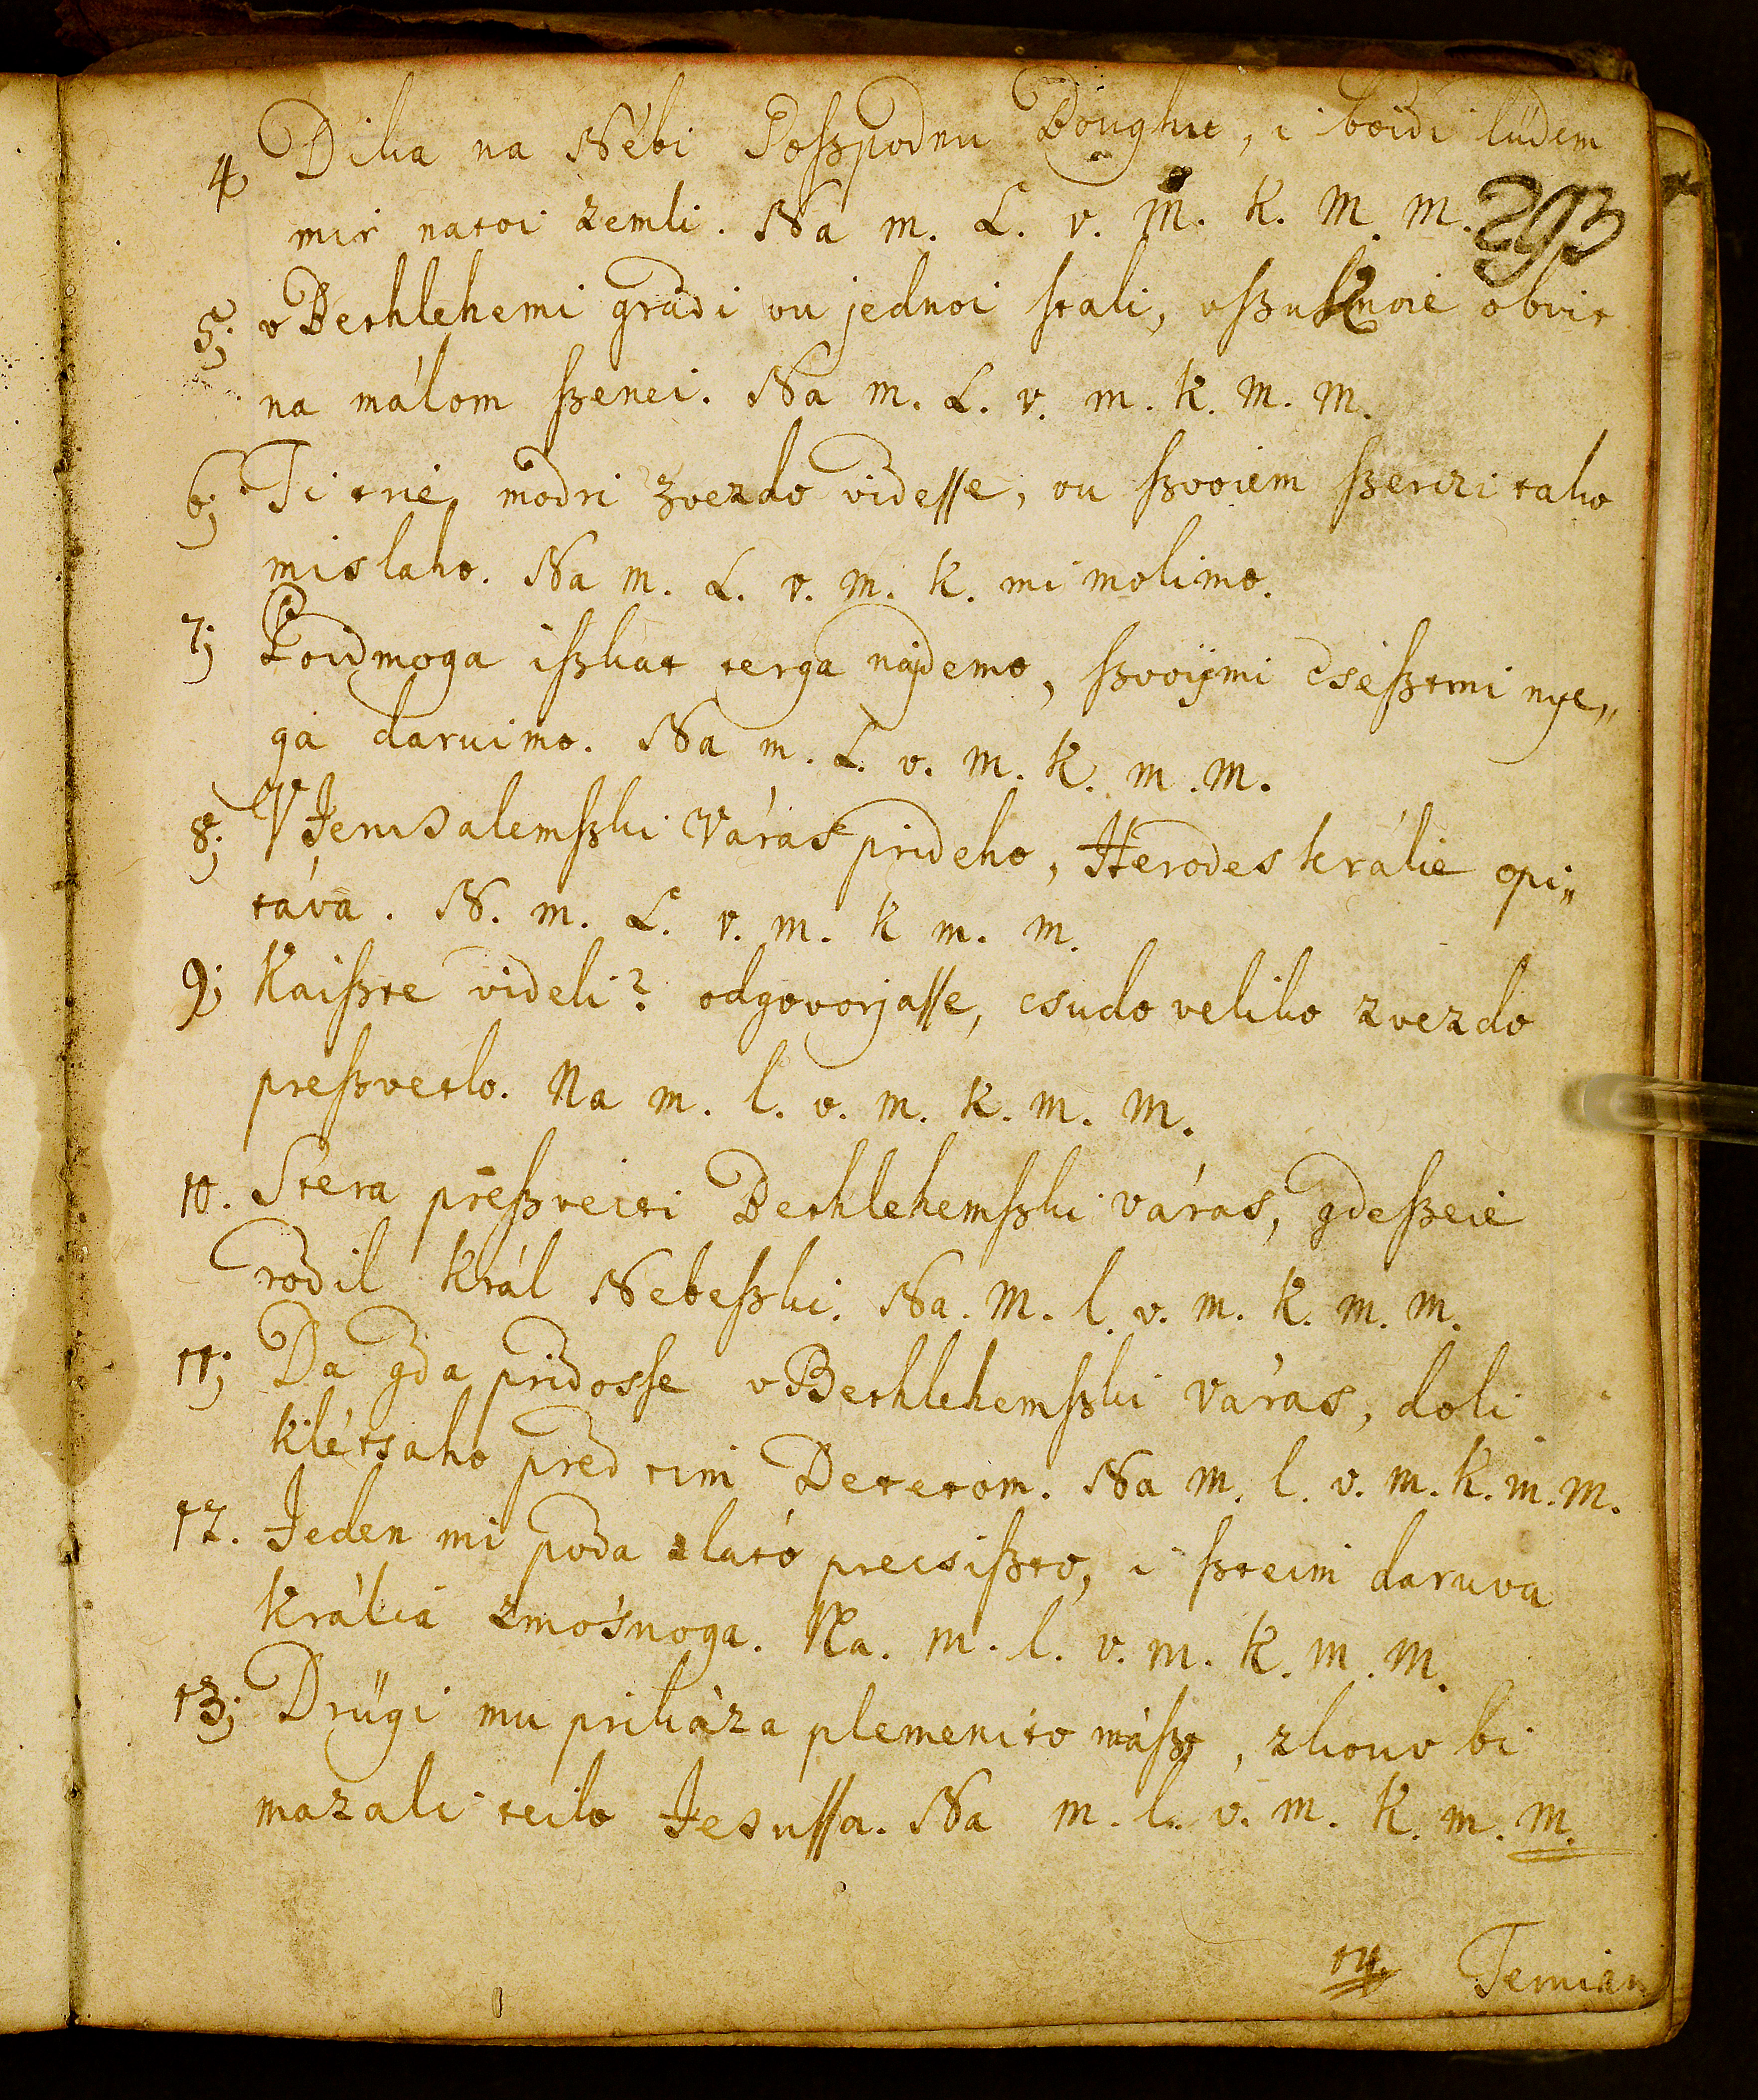 293
4 Dika na Nébi Goſzpodnu Bôughu, i boidi lüdem
mir natoi zemli. Na m. L. v. m. k. m. m.
5; v Bethlehemi grádi vu jednoi ſtali, vſzuknoié obvit
na málom ſzenei. Na m. L. v. m. k. m. m.
6; Ti trié modri zvezdo videſſe, vu ſzvoiem ſzerczi tako
mislaho. Na m. L. v. m. k. mi molimo.
7; Poidmoga iſzkat terga nájdemo, ſzvoijmi cséſztmi nye„
ga daruimo. Na m. L. v. m. k. m. m.
8; V Jerusalemſzki Váras prideho, Herodes králie opi„
táva. N. m. L. v. m. k m. m.
9; Kaiſzte videli? odgovorjaſſe, csudo veliko zvezdo
preſzvetlo. Na m. l. v. m. k. m. m.
10. Stera preſzveiti Bethlehemſzki váras, gdeſzeie
rodil Král Nebeſzki. Na. m. l. v. m. k. m. m.
11; Da gda pridosſe v Bethlehemſzki Váras, doli
klétsaho pred tim Detetom. Na m. l. v. m. k. m. m.
12. Jeden mi poda zlató precsiſzto, i ſzteim daruva
Králiá zmosnoga. Na. m. l. v. m. k. m. m.
13; Drügi mu prikáza plemenito máſzt, zkouv bi
mazali teilo Jesuſſa. Na m. l. v. m. k. m. m.
14. Temian